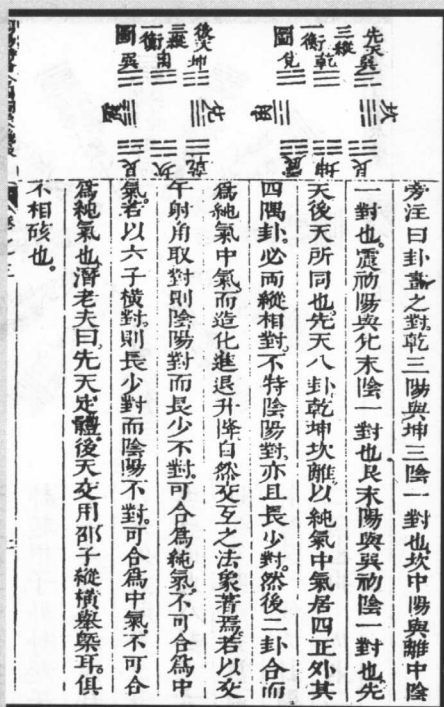 先天巽
三縱
一衡乾
圖兌
坎
艮
坤
震
後天坤
三縱
一衡
圖巽
兌
乾
坎
艮
旁注曰卦畫之對。乾三陽與坤三陰一對也。坎中陽與離中陰
一對也。震初陽與兌末陰一對也。艮末陽與巽初陰一對也。先
天後天所同也。先天八卦乾坤坎離以純氣中氣居四正外其
四隅卦。必兩縱相對。不特陰陽對。亦且長少對。然後二卦合而
爲純氣中氣。而造化進退升降自然交互之法象著焉。若以交
午射角取對則陰陽對而長少不對。可合爲純氣。不可合爲中
氣。若以六子橫對。則長少對而陰陽不對。可合爲中氣。不可合
爲純氣也。潛老夫曰。先天定體。後天交用。邵子縱橫舉槩耳。俱
不相硋也。